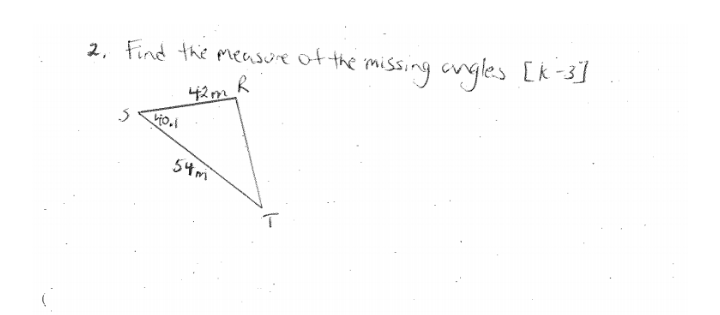 2. Find the measure of the missing angles [k-3]
42m R
S 40.1
54m
T